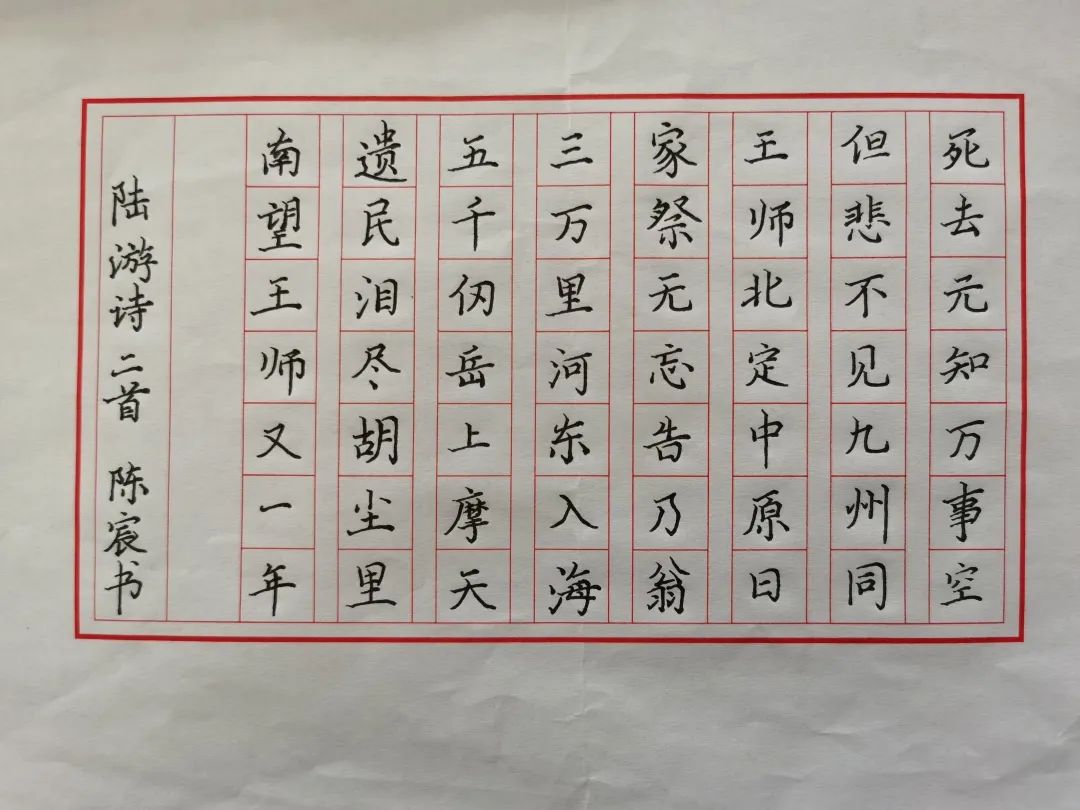 死去元知万事空
但悲不见九州同
王师北定中原日
家祭无忘告乃翁
三万里河东入海
五千仞岳上摩天
遗民泪尽胡尘里
南望王师又一年
陆游诗二首 陈宸书